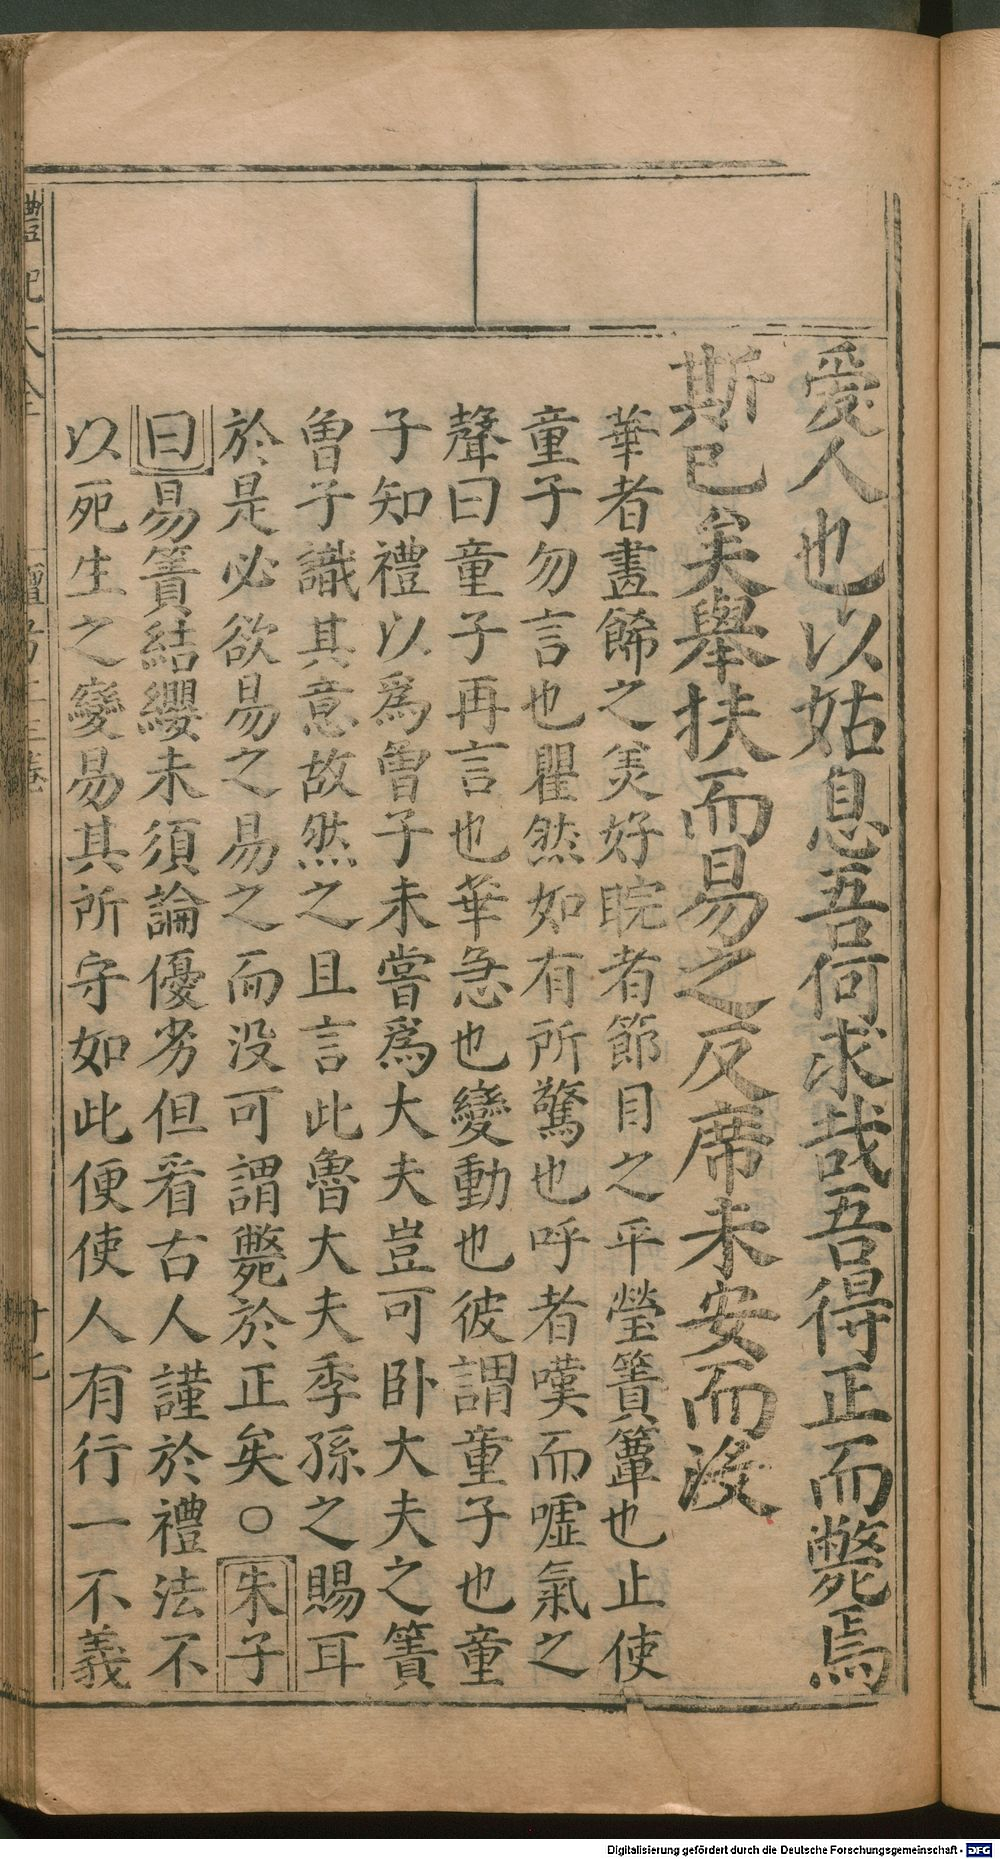 愛人也以姑息吾何求哉吾得正而斃焉
斯已矣舉扶而易之反席未安而沒
華者畫餙之羙好睆者節目之平瑩簀簟也止使
童子勿言也瞿然如有所驚也呼者嘆而噓氣之
聲曰童子再言也革急也變動也彼謂童子也童
子知禮以爲曾子未嘗爲大夫豈可卧大夫之簀
曾子識其意故然之且言此魯大夫季孫之賜耳
於是必欲易之易之而没可謂斃於正矣○朱子
曰易簀結纓未須論優劣但看古人謹於禮法不
以死生之變易其所守如此便使人有行一不義
禮記大全
Digitalisierung gefördert durch die Deutsche Forschungsgemeinschaft - DFG